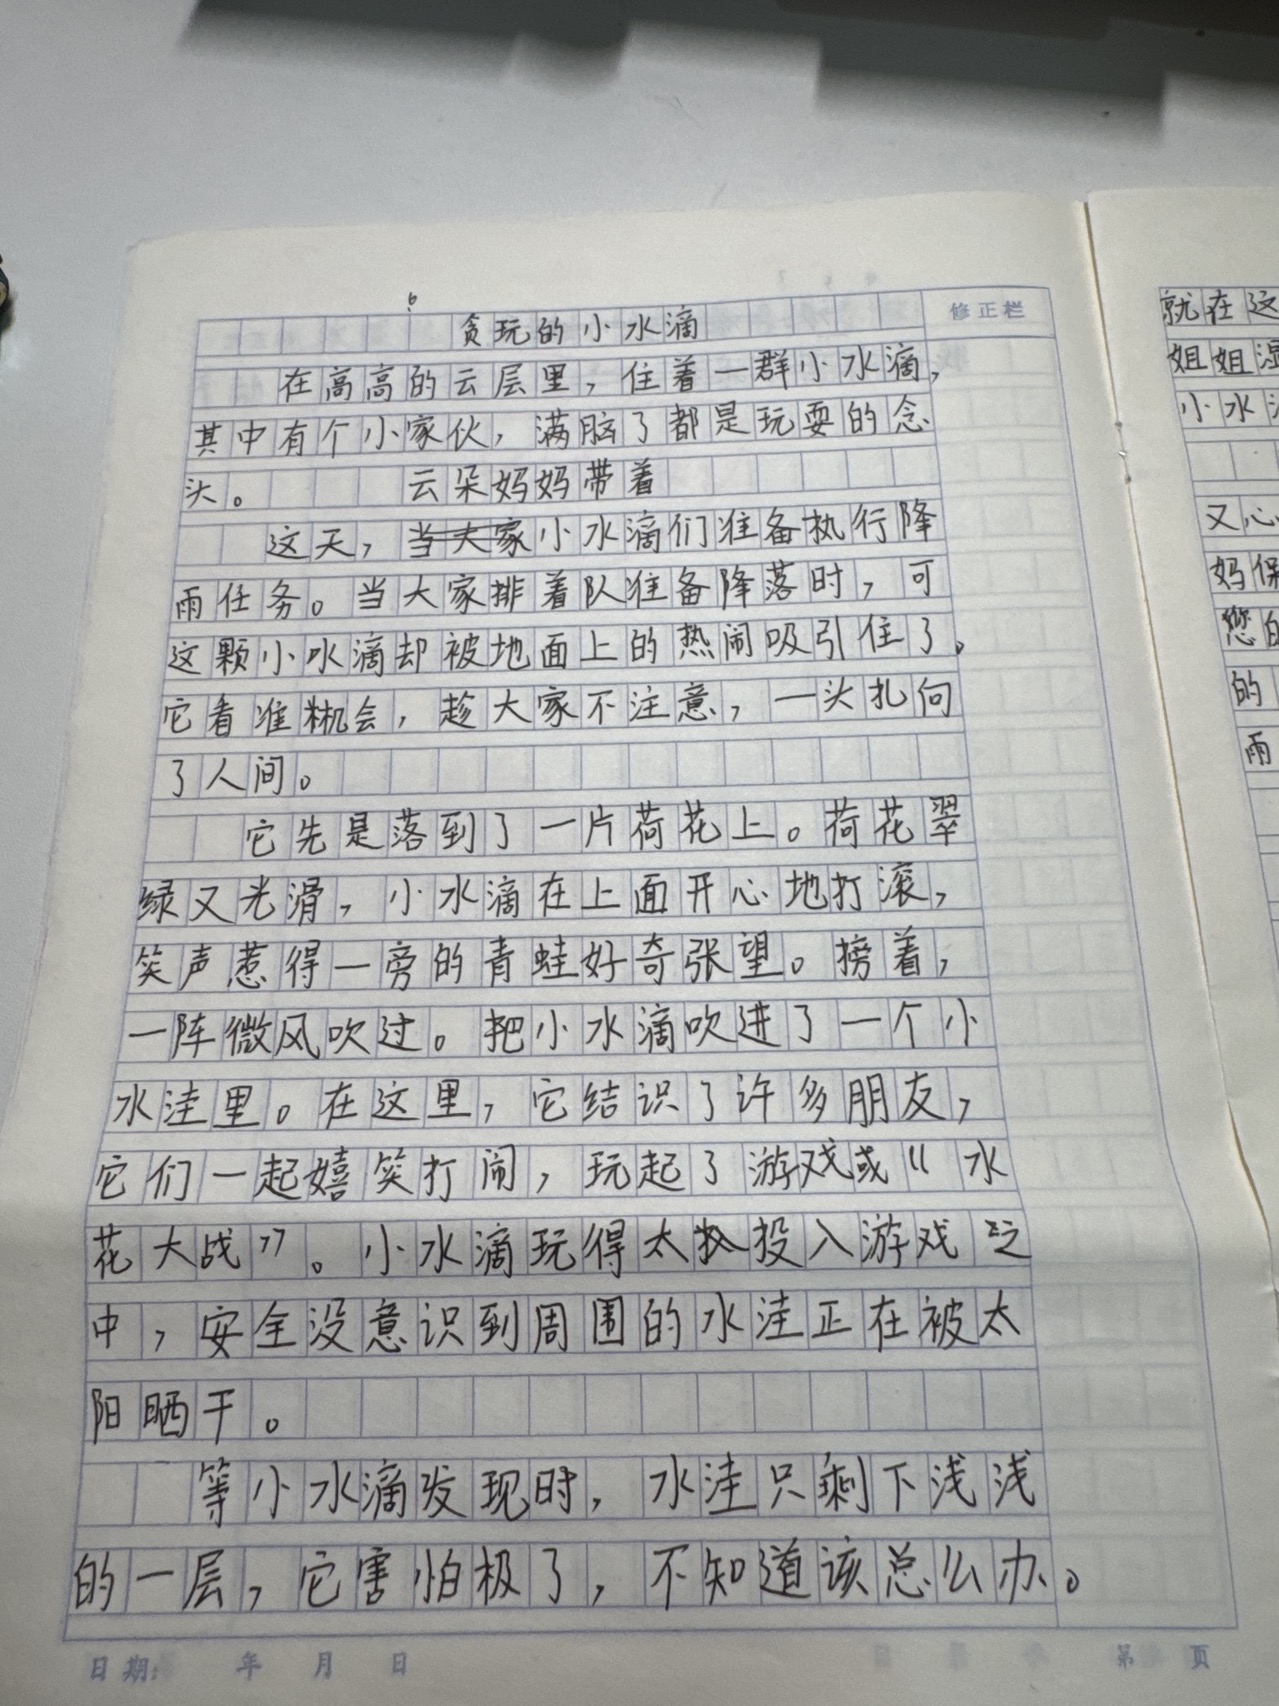 修正栏
贪玩的小水滴
在高高的云层里，住着一群小水滴，
其中有个小家伙，满脑了都是玩耍的念
头。
云朵妈妈带着
这天，当大家小水滴们准备执行降
雨任务。当大家排着队准备降落时，可
这颗小水滴却被地面上的热闹吸引住了。
它看准机会，趁大家不注意，一头扎向
了人间。
它先是落到了一片荷花上。荷花翠
绿又光滑，小水滴在上面开心地打滚，
笑声惹得一旁的青蛙好奇张望。接着，
一阵微风吹过。把小水滴吹进了一个小
水洼里。在这里，它结识了许多朋友，
它们一起嬉笑打闹，玩起了游戏或“水
花大战”。小水滴玩得太投入游戏之
中，安全没意识到周围的水洼正在被太
阳晒干。
等小水滴发现时，水洼只剩下浅浅
的一层，它害怕极了，不知道该总么办。
日期： 年 月 日
第 页
就在这
姐姐湿
小水
又心
妈保
您的
的
雨